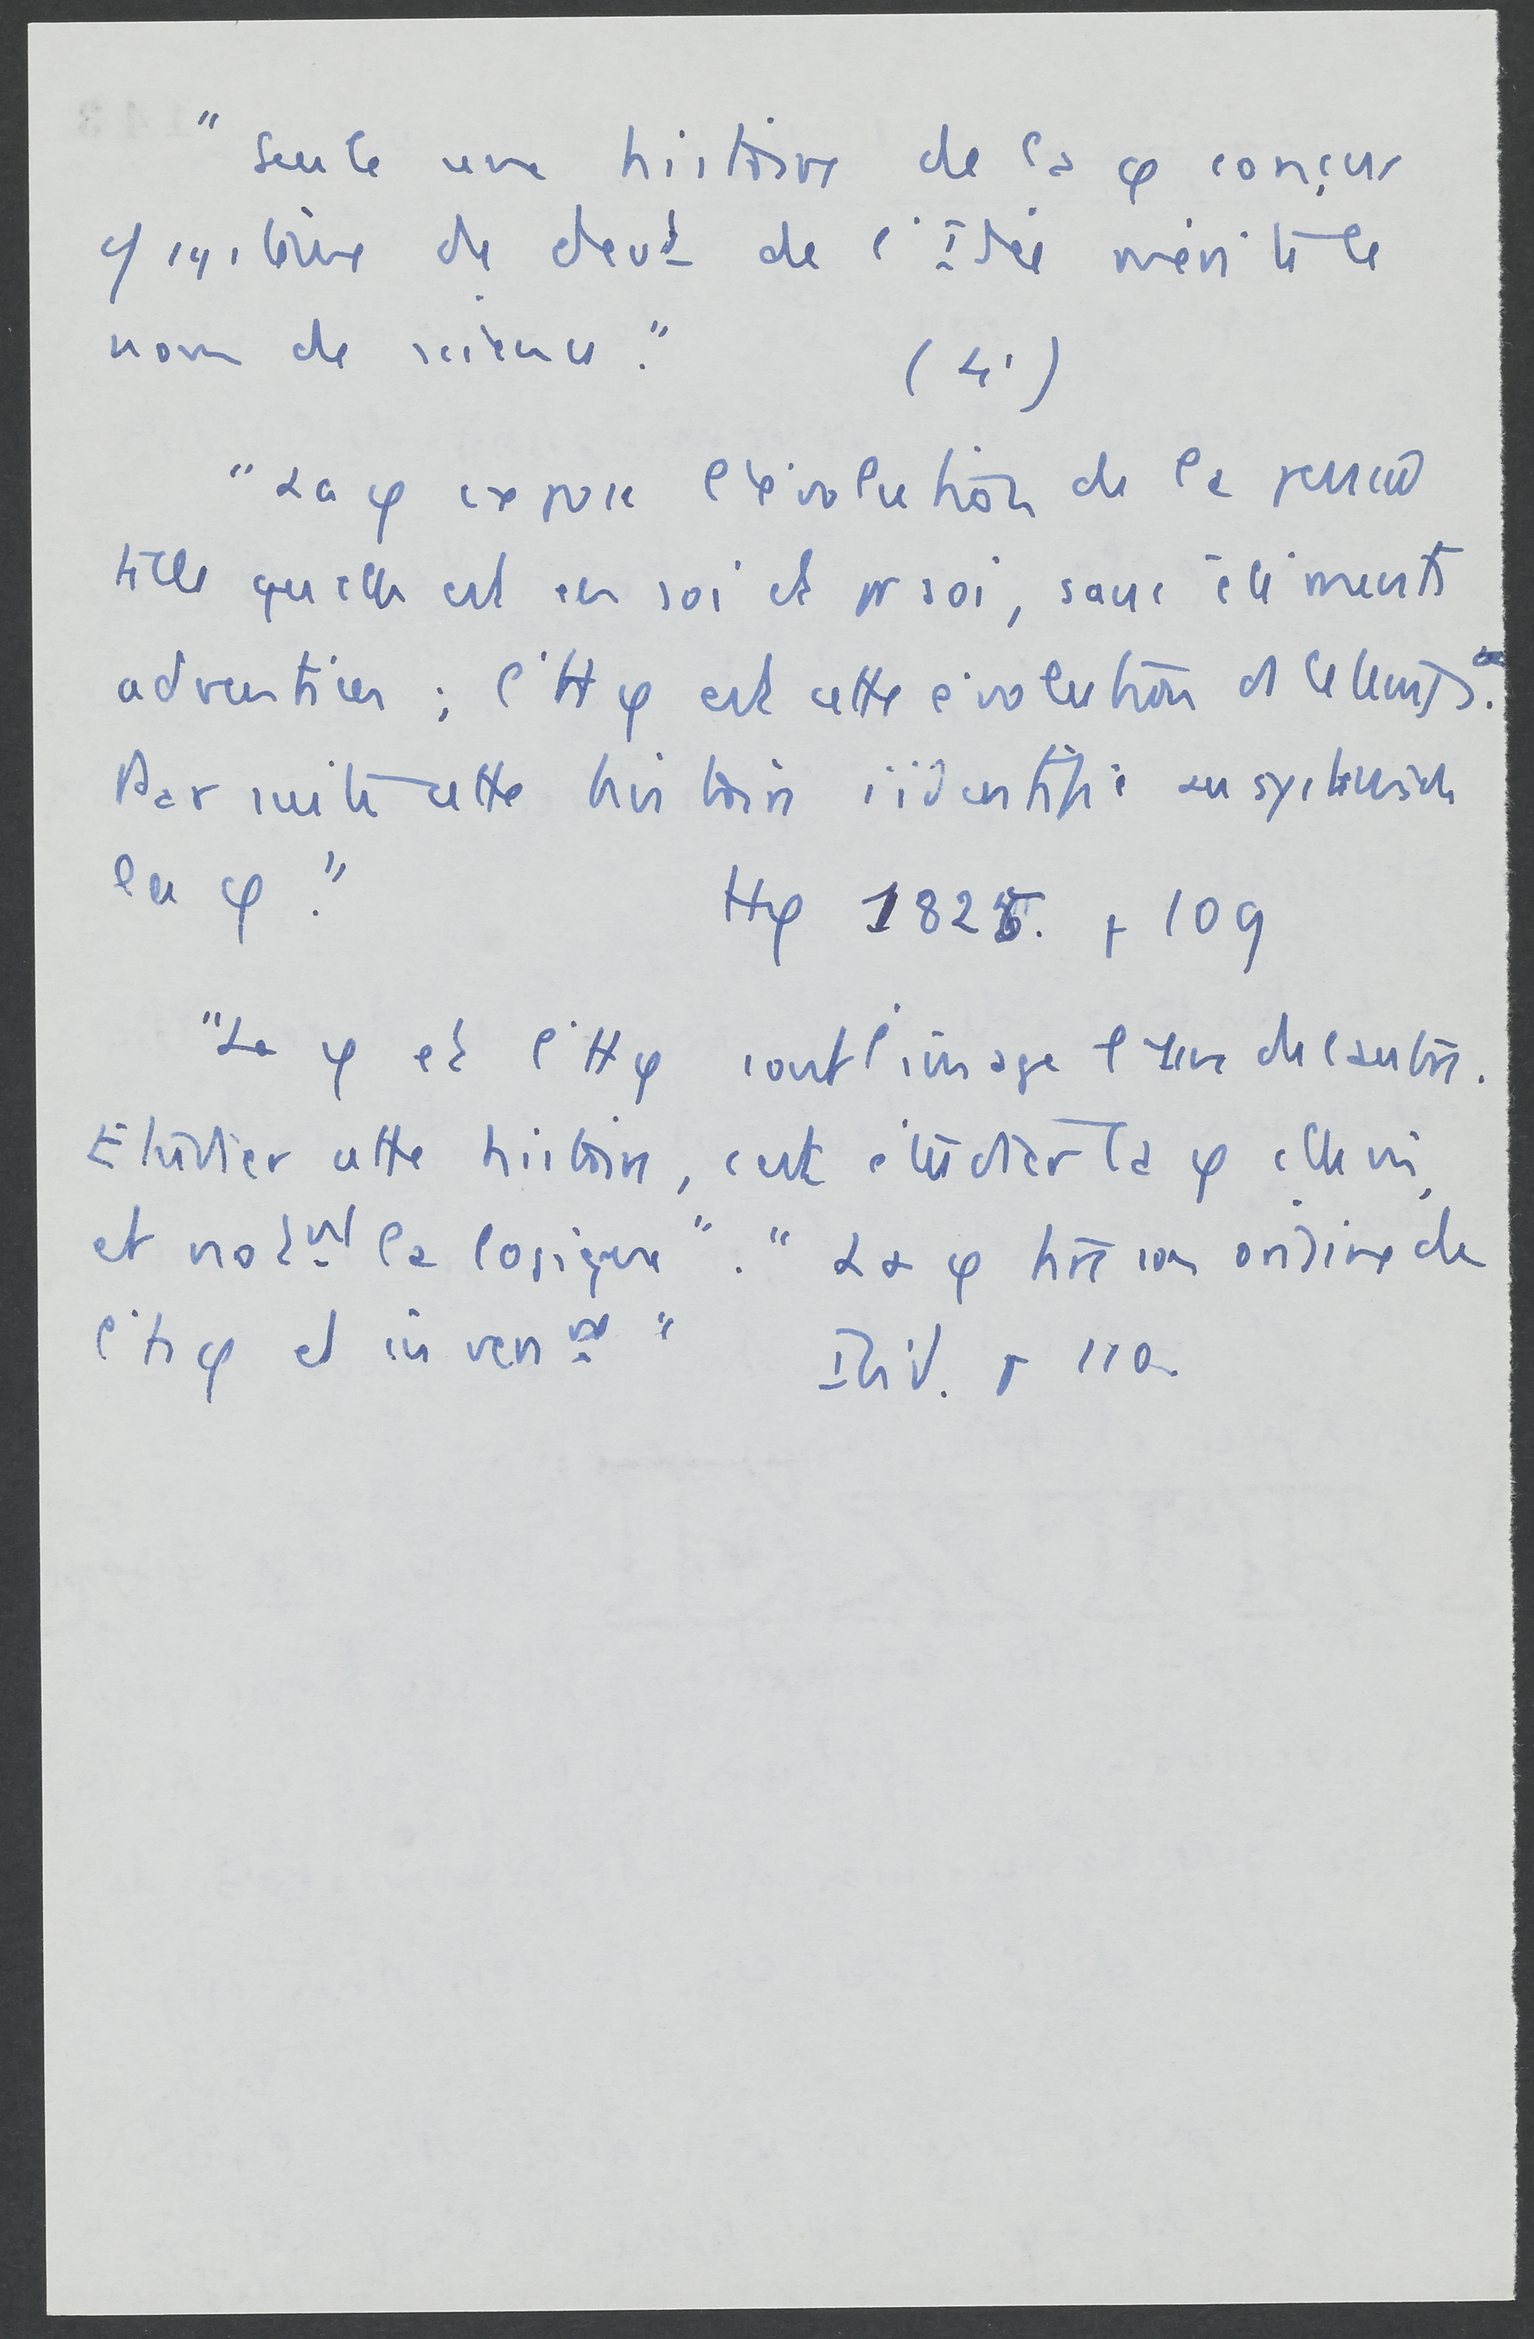 "Seule une histoire de la φ conçue
cf système de devt de l'Idée mérite le
nom de science." (41)
"La φ expose l'évolution de la pensée
telle qu'elle est en soi et pr soi, sans éléments
adventices ; l'Hφ est cette évolution ds le temps.
Par suite cette histoire s'identifie au système de
la φ." Hφ 1825. p 109
"La φ et l'Hφ sont l'image l'une de l'autre.
Etudier cette histoire, c'est étudier la φ elle mê,
et notmt la logique". "La φ tire son origine de
l'hφ et inverst" Ibid. p 110.